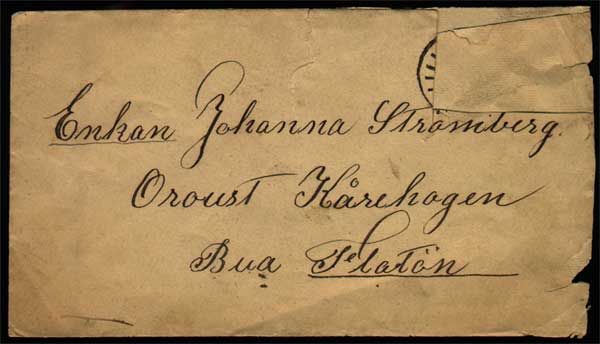 Enkan Johanna Strömberg.
Oroust Kårehogen
Bua Flatön